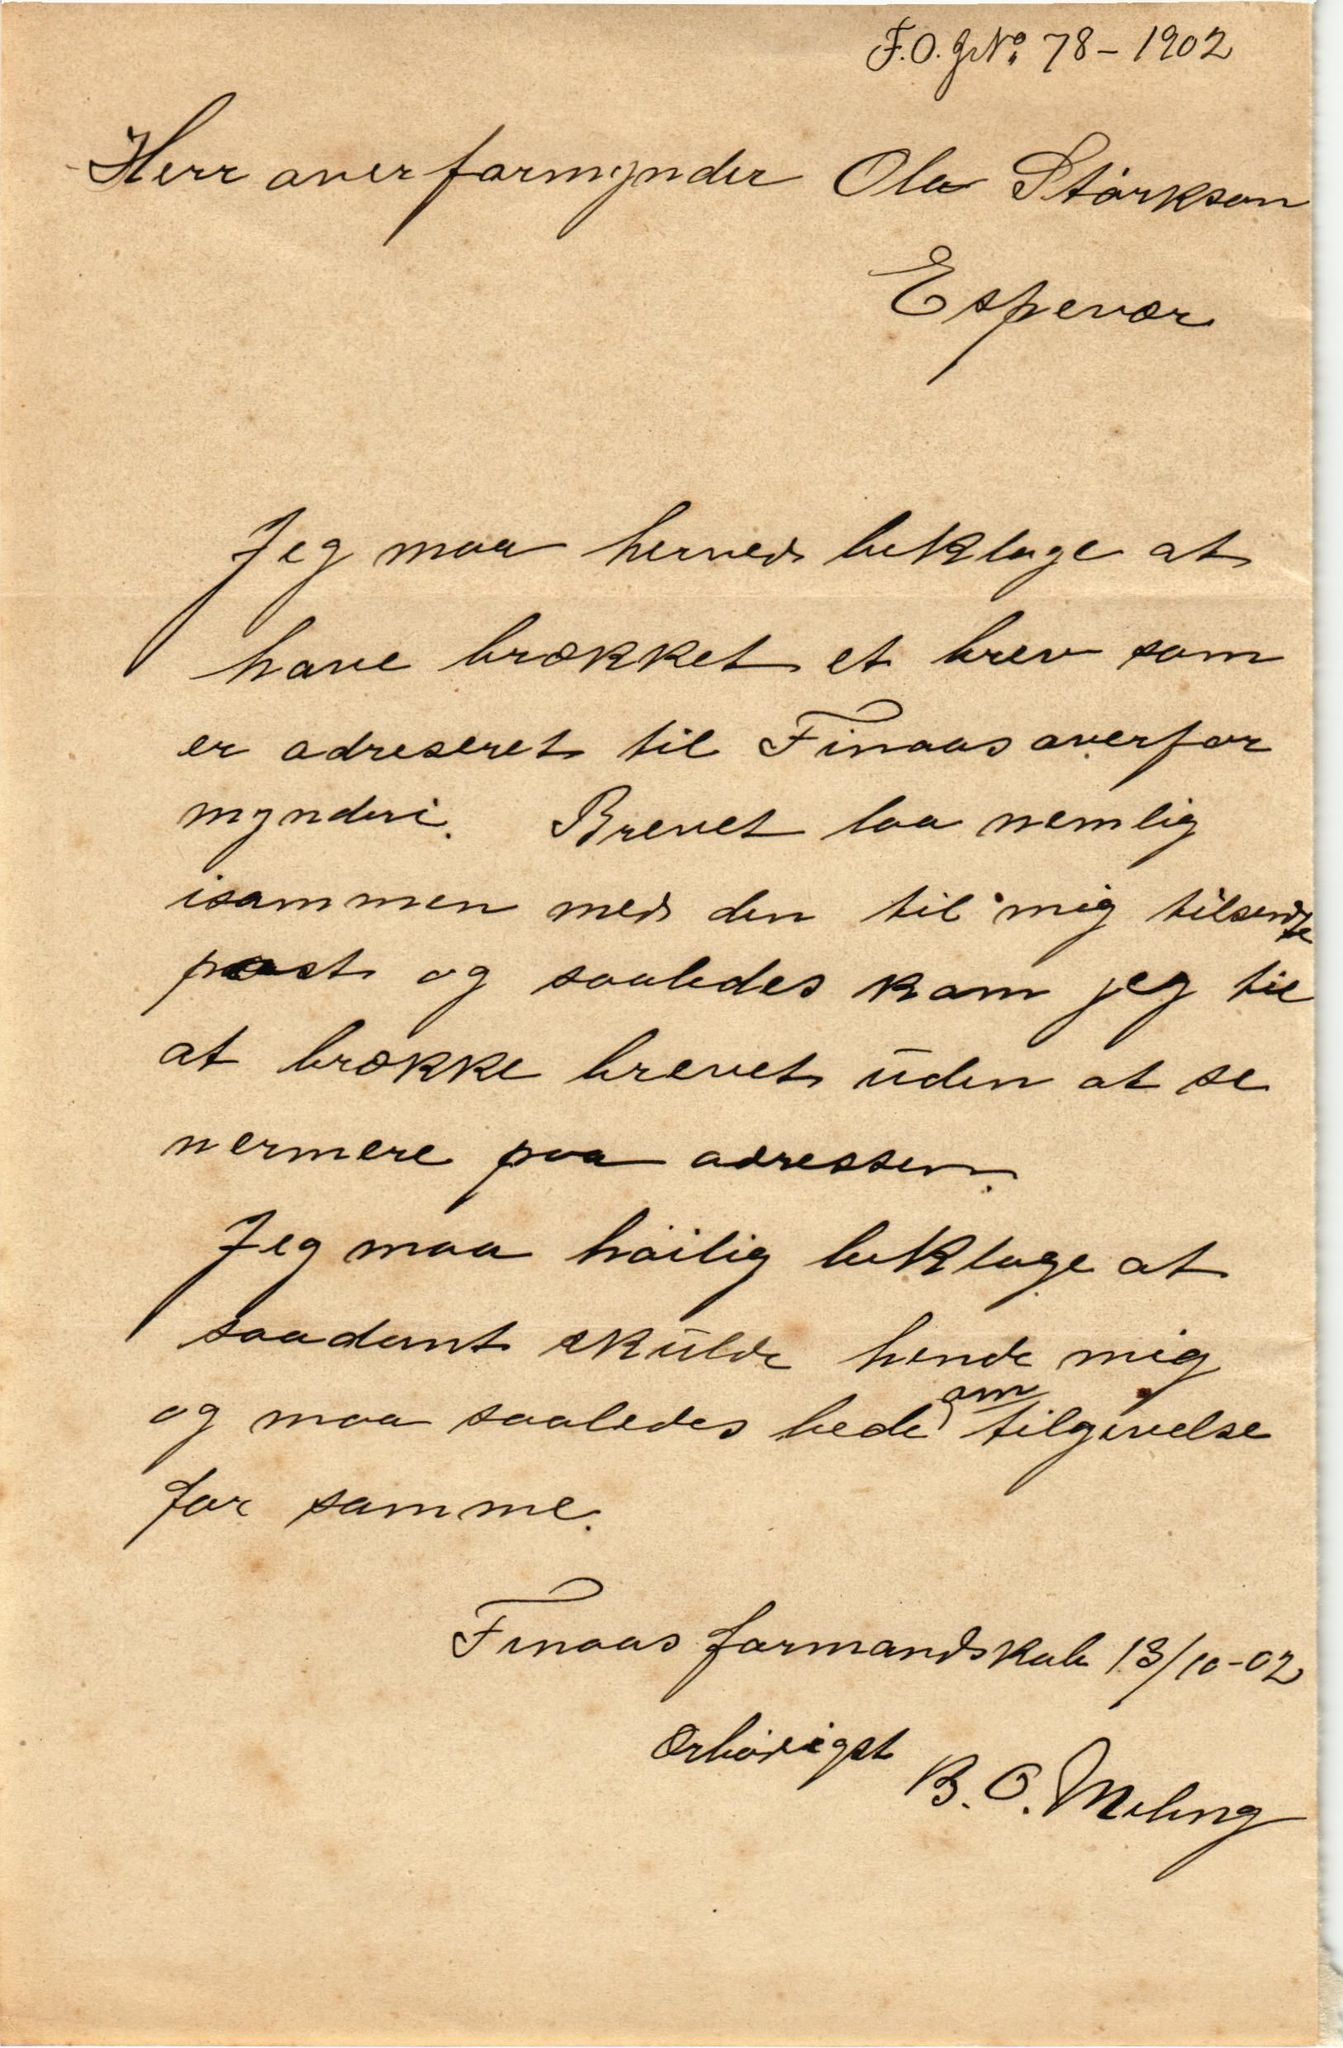 F.O. J№ 78 – 1902
Herr overformynder Ola Størkson
Espevær
Jeg maa herved beklage at
have brækket et brev som
er adreseret til Finaas overfor
mynderi. Brevet laa nemlig
isammen med den til mig tilsendte
post og saaledes kom jeg til
at brække brevet uden at se
nermere paa adressen.
Jeg maa høilig beklage at
saadant skulde hende mig
og maa saaledes bede om tilgivelse
for samme.
Finaas formandskab 13/10-02
Ærbødigst
B. O. Meling